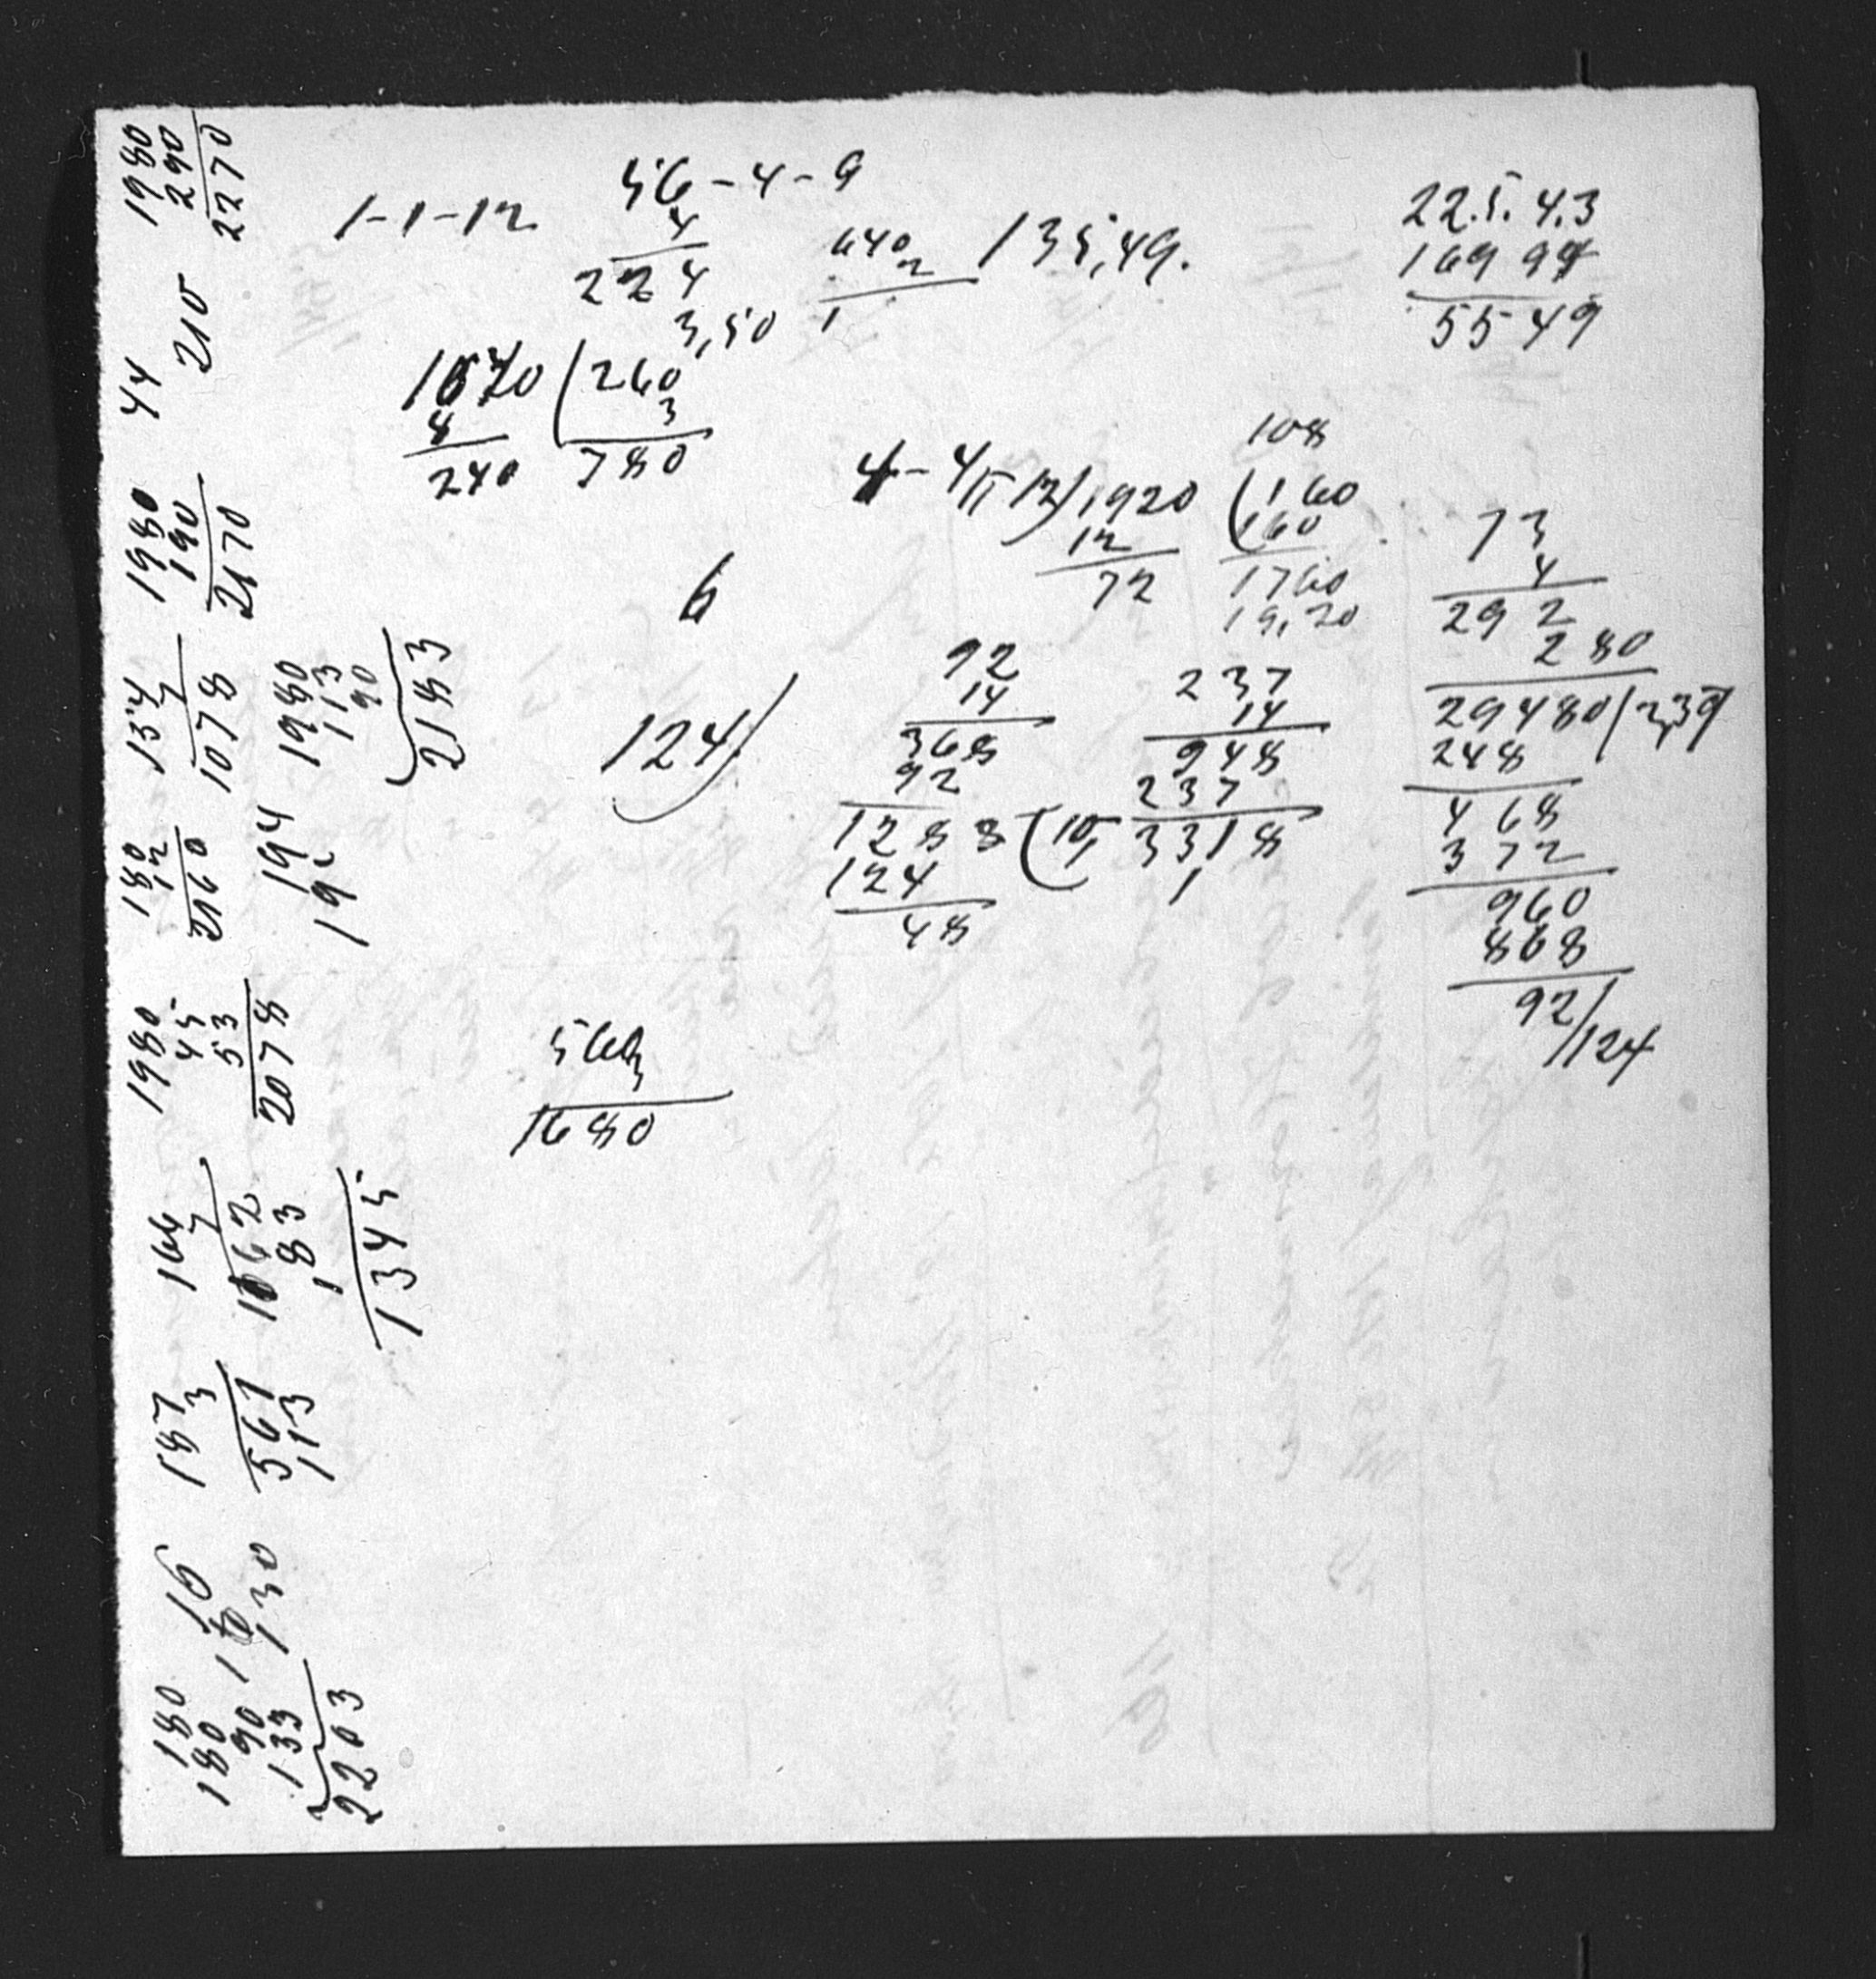 56-4-9
1-1-12
4
224
3,50
640
2
1
135,49.
22.5.4.3
16994
5549
1670
8
240
260
3
780
4-4/
12/1920
12
72
108
160
160
1760
19,20
73
4
292
280
29480/2,39
248
468
372
960
868
92/124
6
124/
92
14
368
92
1288
124
48
10,
237
14
948
237
3318
1
560
3
1680
1980
290
2270
210
44
1980
190
2170
154
7
1078
1980
113
90
2183
180
12
2160
194
19
1980
45
53
2078
166
7
1162
183
1345
187
3
561
113
16
130
180
180
90
133
2203